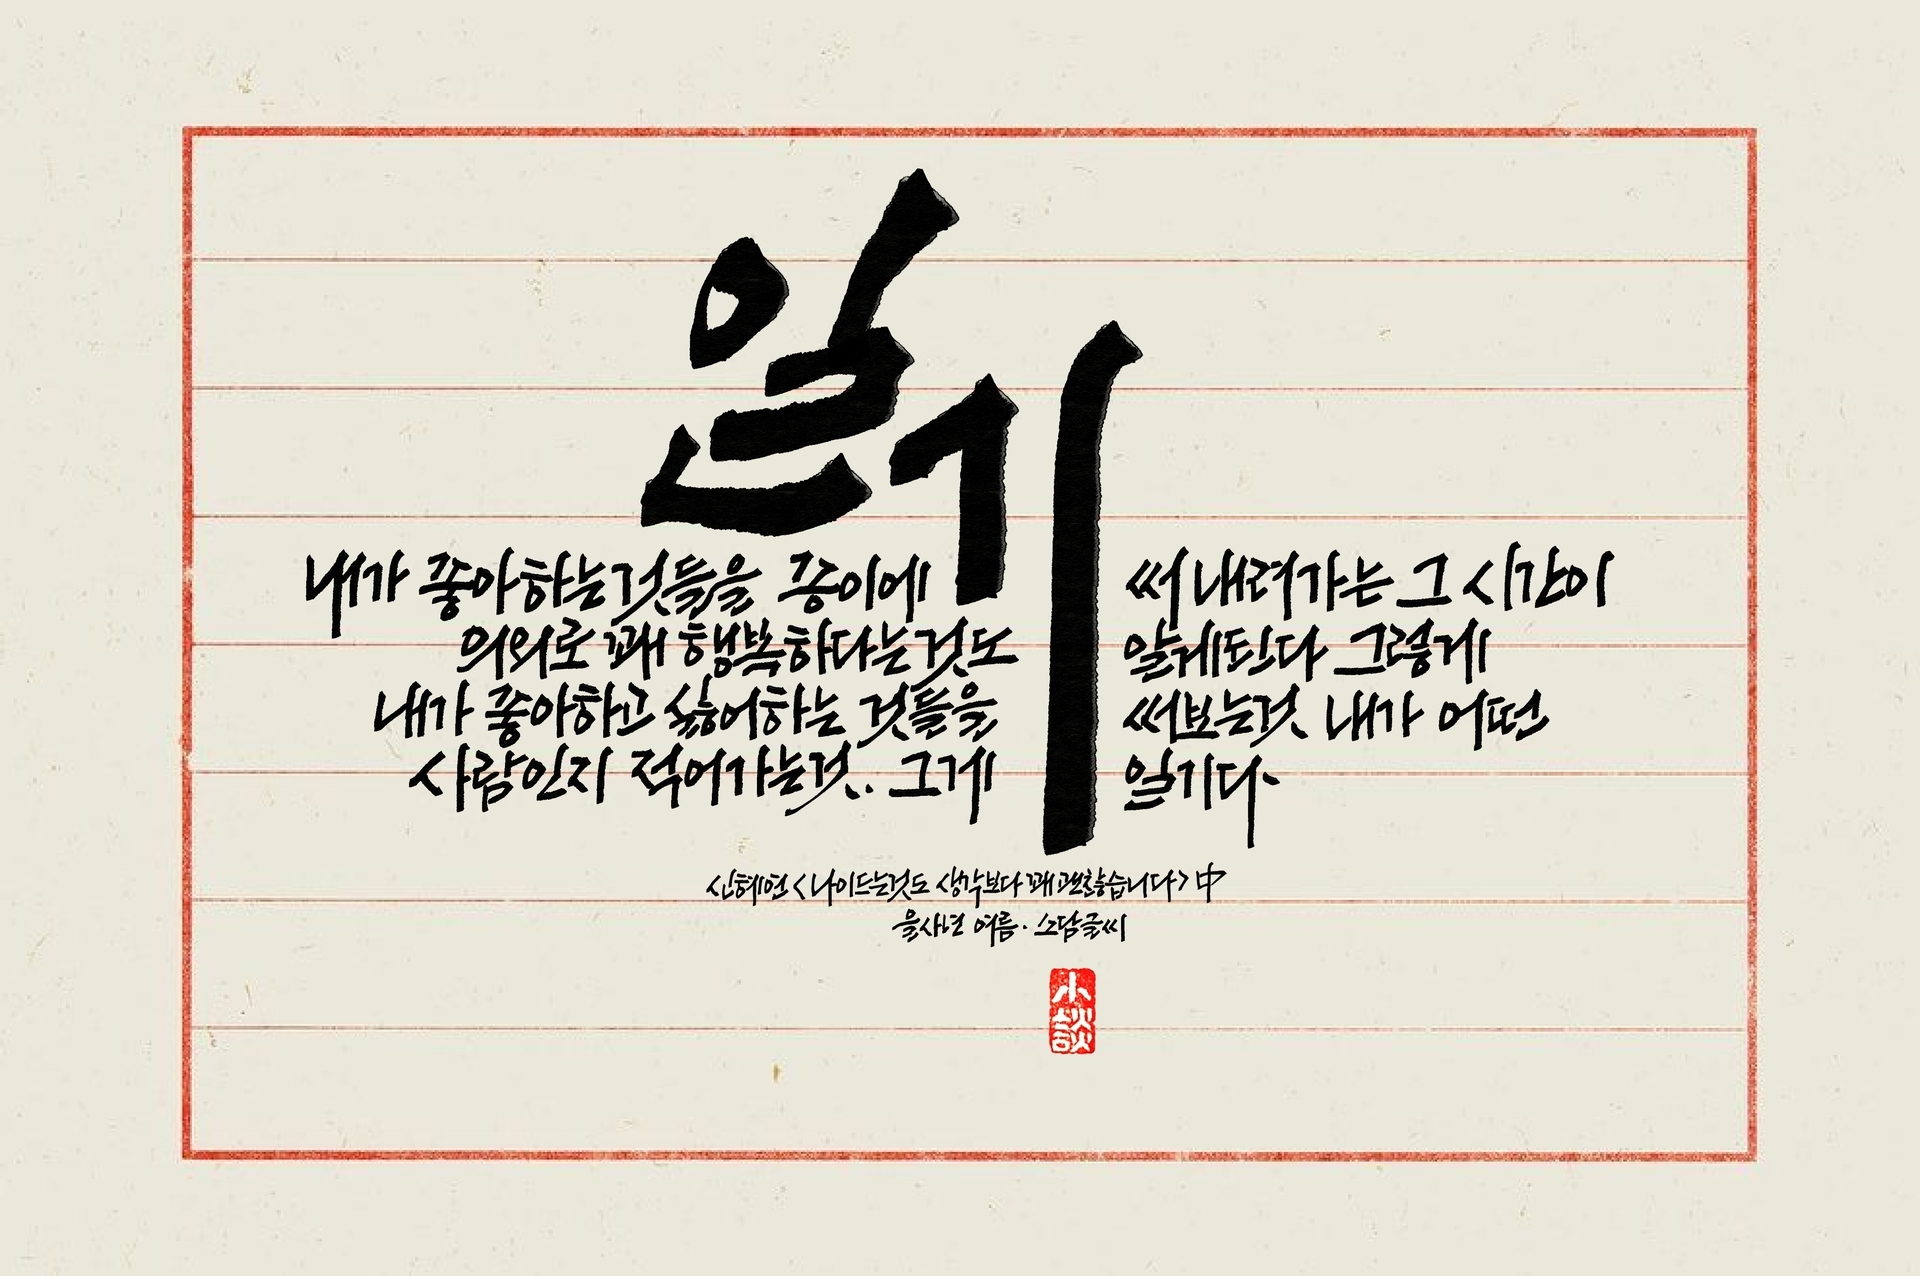 일기
내가 좋아하는것들을 종이에 써 내려가는 그 시간이
의외로 꽤 행복하다는것도 알게된다 그렇게
내가 좋아하고 싫어하는 것들을 써보는것 내가 어떤
사람인지 적어가는것.. 그게 일기다.
신혜연 <나이드는것도 생각보다 꽤 괜찮습니다> 中
을사년 여름· 소담글씨
小談